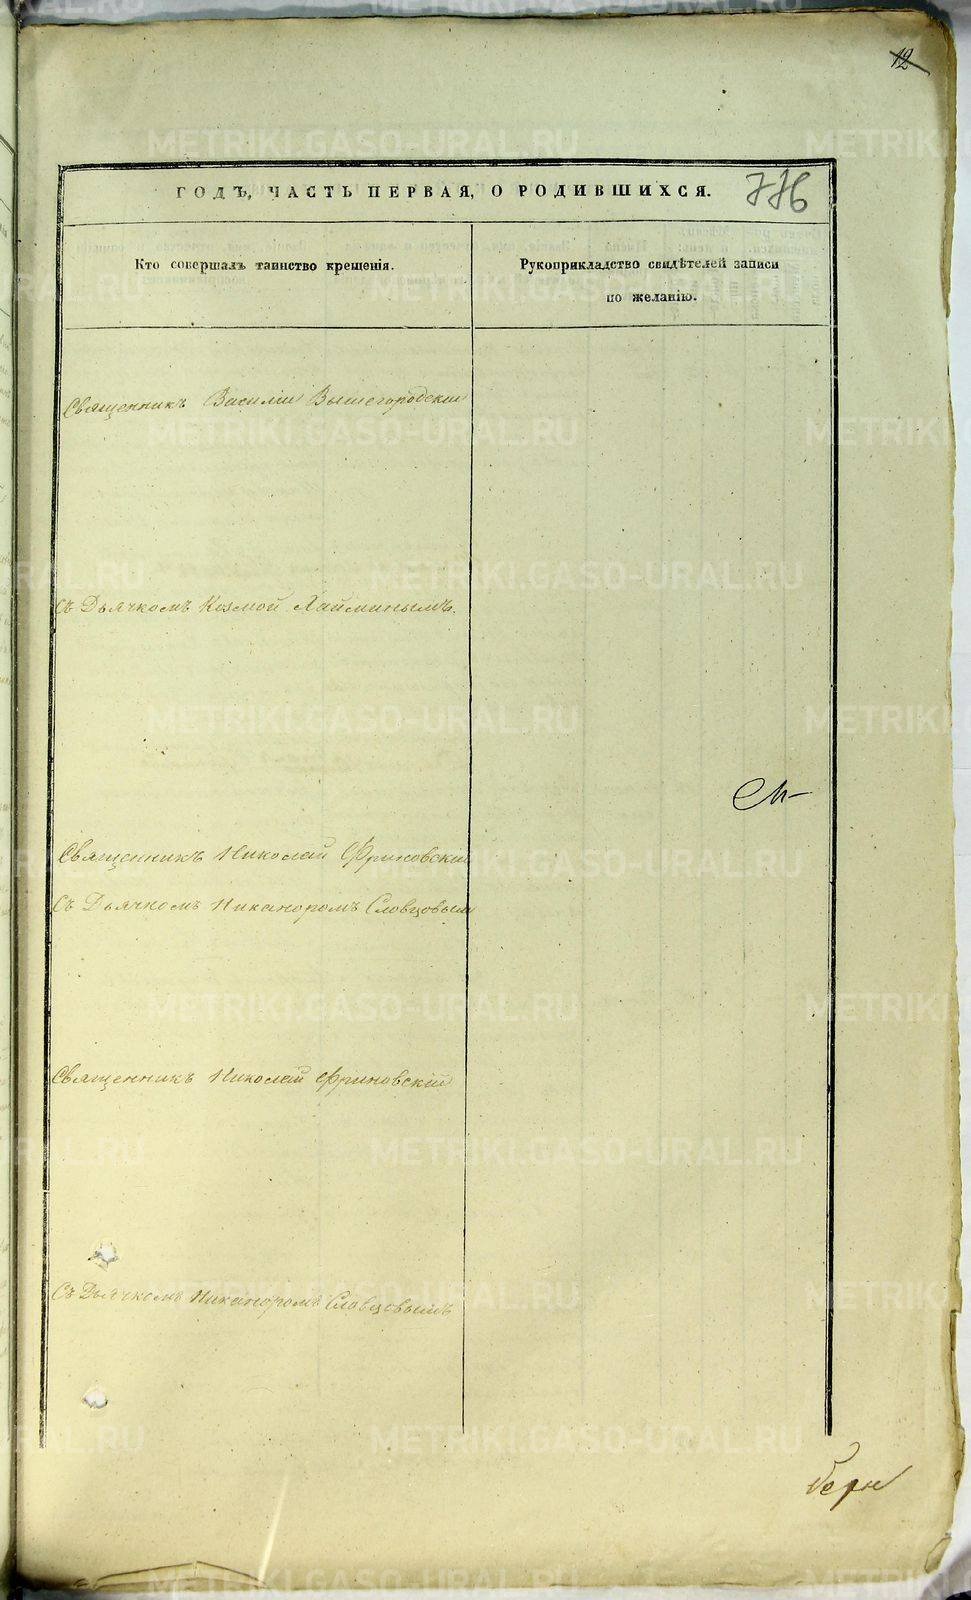 12
ГОДЪ, ЧАСТЬ ПЕРВАЯ, О РОДИВШИХСЯ.
Кто совершалъ таинство крещенія.
Рукоприкладство свидѣтелей записи
по желанію.
Священникъ Василій Вышегородскій
Съ Дьячкомъ Козмой Хайминымъ.
Священникъ Николай Фриновскій
Съ Дьячкомъ Никаноромъ Словцовым
Священникъ Николай Фриновскій
Съ Дьячкомъ Никаноромъ Словцовымъ
METRIKI.GASO-URAL.RU